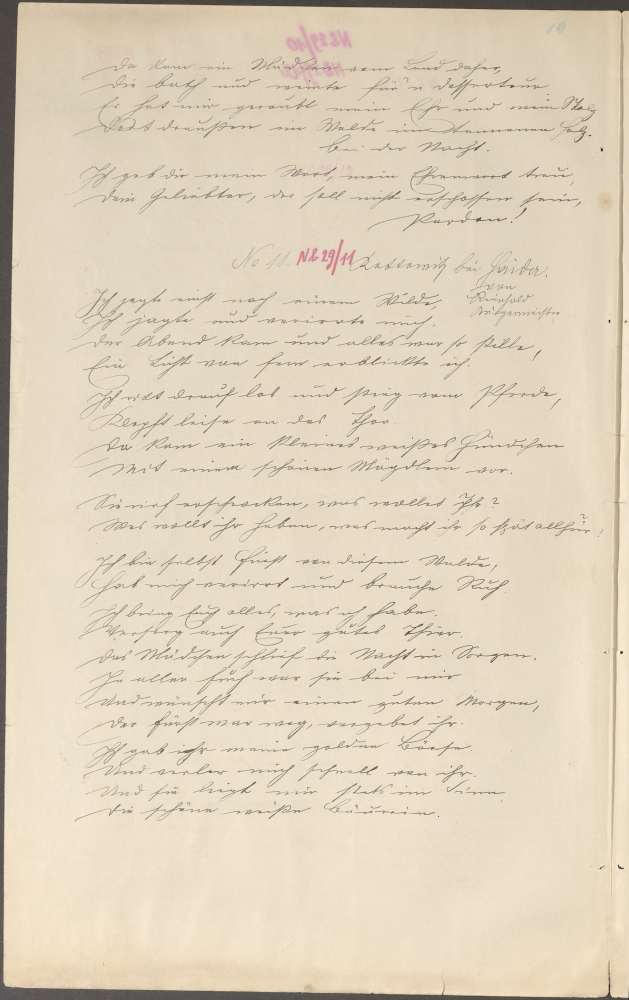 10
Da kam ein Mädchen vom Land daher,
Die bath und weinte für'n Desserteur
Er hat mir geraubt mein Ehr und mein Stolz
Dort draußen im Walde im Tannenen Holz.
bei der Nacht.
Ich geb dir mein Wort, mein Ehrenwort treu,
Dein Geliebter, der soll nicht erschossen sein,
Pardon!
No 11. N29/11 Kottowitz bei Haida.
von
Reinhold
Ich jagte einst nach einem Wilde,
Ich jagte und verirrte mich.
Der Abend kam und alles war so stille,
Ein Licht von fern erblickte ich.
Ich ritt drauf los und stieg vom Pferde,
Klopft leise an das Thor.
Da kam ein kleines weißes Hündchen
Mit einem schönen Mägdlein vor.
Sie rief erschrocken, was wollet Ihr?
Was wollt ihr haben, was macht ihr so spät allhier?
Ich bin selbst Fürst von diesem Walde,
Hab mich verirrt und brauche Ruh.
Ich bring Euch alles, was ich habe.
Versorg auch Euer gutes Thier.
Das Mädchen schlief die Nacht in Sorgen.
In aller früh war sie bei mir
Und wünscht mir einen guten Morgen,
Der Fürst war weg, vergebet ihr.
Ich gab ihr meine goldne Börse
Und verlor mich schnell von ihr.
Und sie liegt mir stets im Sinn
Die schöne weiße Bäurin.